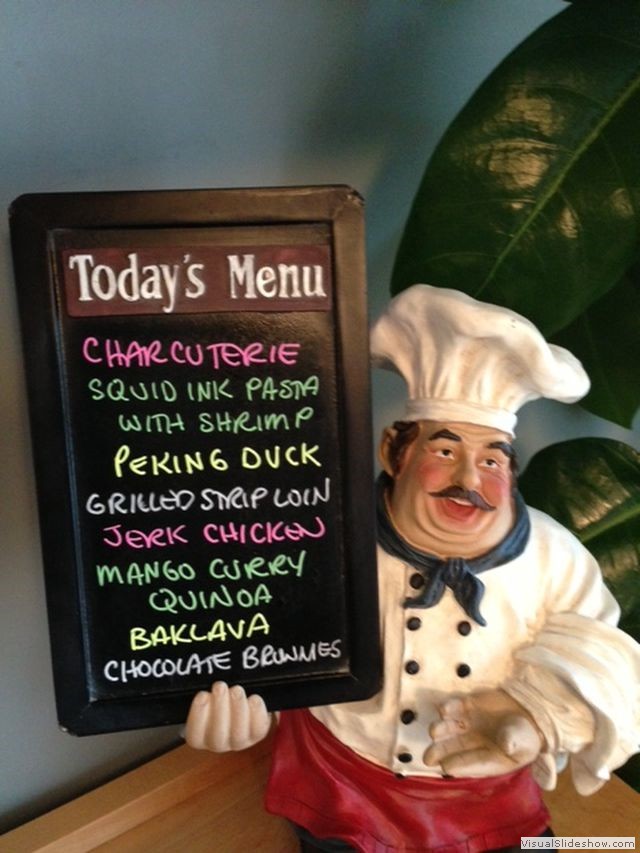 Today's Menu
CHARCUTERIE
SQUID INK PASTA
WITH SHRIMP
PEKING DUCK
GRILLED STRIP LOIN
JERK CHICKEN
MANGO CURRY
QUINOA
BAKLAVA
CHOCOLATE BROWNIES
VisualSlideshow.com